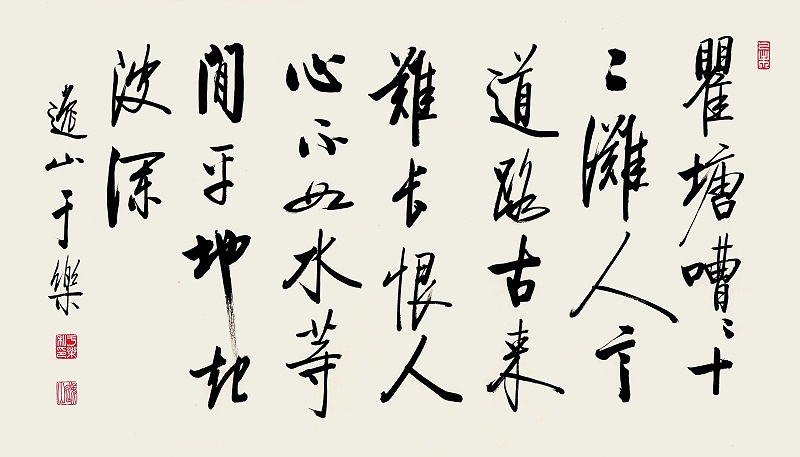 瞿塘嘈々十
二灘人言
道路古来
難長恨人
心不如水等
閒平地起
波瀾
遠山于樂